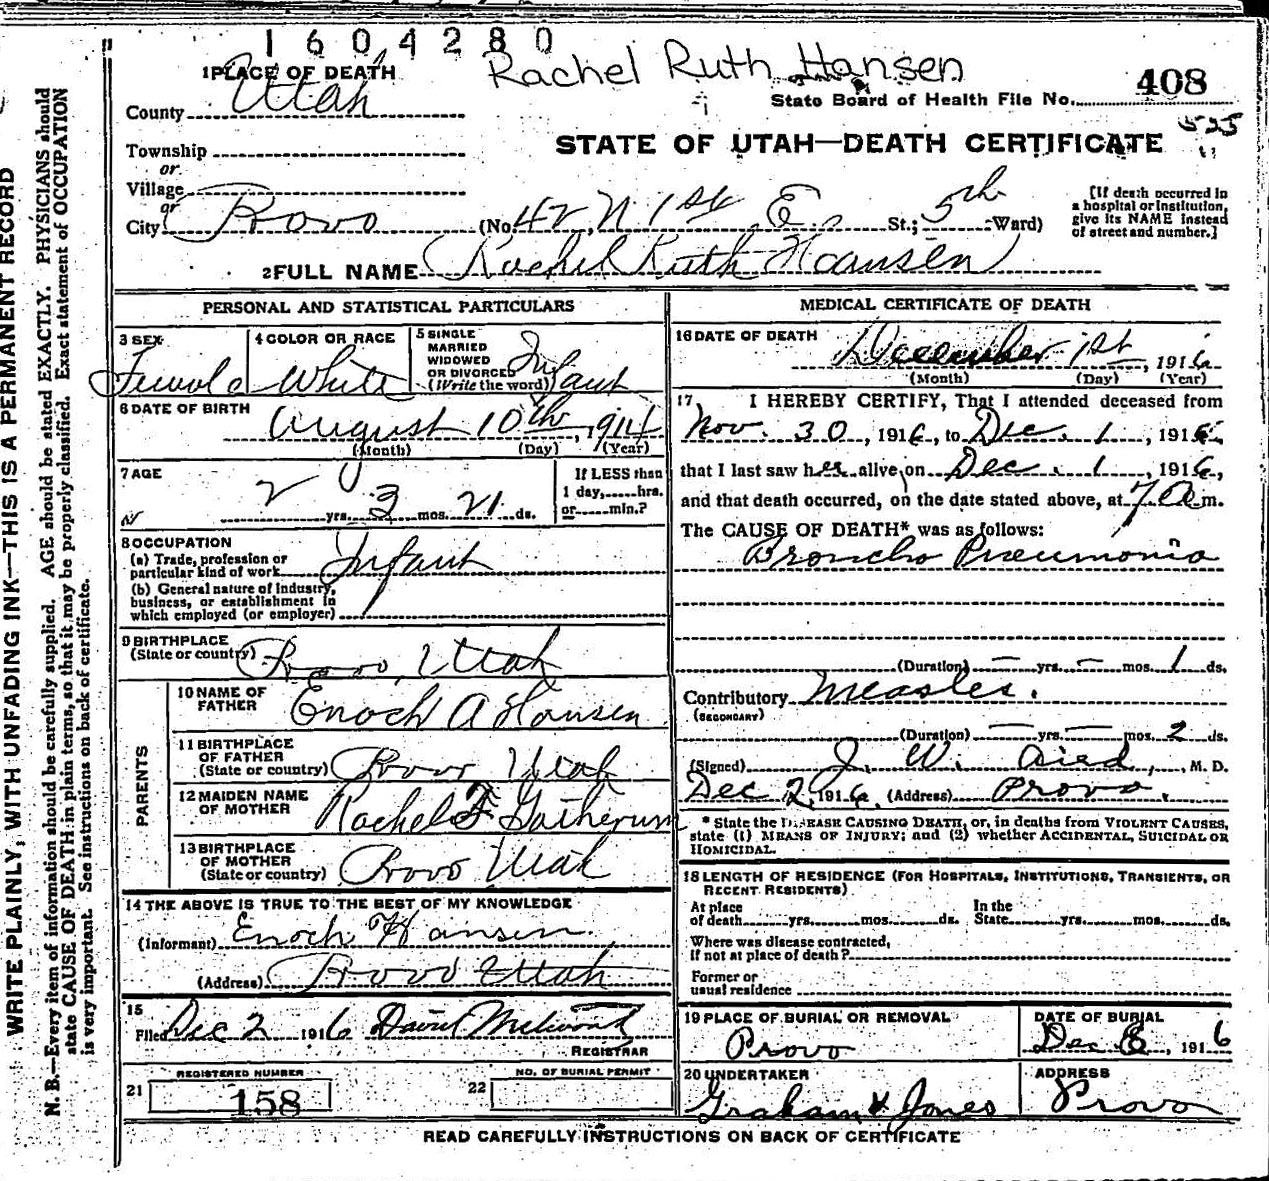 1604280
Rachel Ruth Hansen
1 PLACE OF DEATH
County Utah
State Board of Health File No. 408
525
Township
or
Village
or
STATE OF UTAH—DEATH CERTIFICATE
City Provo (No. 42 N 1st E St.; 5th Ward)
[If death occurred in
a hospital or institution,
give its NAME instead
of street and number.]
2 FULL NAME Rachel Ruth Hansen
PERSONAL AND STATISTICAL PARTICULARS
3 SEX Female
4 COLOR OR RACE White
5 SINGLE
MARRIED
WIDOWED
OR DIVORCED
(Write the word) Infant
6 DATE OF BIRTH
August 10th, 1914
(Month) (Day) (Year)
7 AGE
2 yrs. 3 mos. 21 ds.
If LESS than
1 day, hrs.
or min.?
8 OCCUPATION
(a) Trade, profession or
particular kind of work Infant
(b) General nature of industry,
business, or establishment in
which employed (or employer)
9 BIRTHPLACE
(State or country) Provo, Utah
PARENTS
10 NAME OF
FATHER Enoch A Hansen
11 BIRTHPLACE
OF FATHER
(State or country) Provo Utah
12 MAIDEN NAME
OF MOTHER Rachel F Gatherum
13 BIRTHPLACE
OF MOTHER
(State or country) Provo Utah
14 THE ABOVE IS TRUE TO THE BEST OF MY KNOWLEDGE
(Informant) Enoch Hansen
(Address) Provo Utah
15
Filed Dec 2 1916 David
REGISTRAR
REGISTERED NUMBER
21 158
NO. OF BURIAL PERMIT
22
MEDICAL CERTIFICATE OF DEATH
16 DATE OF DEATH
December 1st, 1916
(Month) (Day) (Year)
17 I HEREBY CERTIFY, That I attended deceased from
Nov. 30, 1916, to Dec. 1, 1916
that I last saw her alive on Dec. 1, 1916,
and that death occurred, on the date stated above, at 7 a m.
The CAUSE OF DEATH* was as follows:
Broncho Pneumonia
(Duration) — yrs. — mos. 1 ds.
Contributory Measles.
(SECONDARY)
(Duration) — yrs. — mos. 2 ds.
(Signed) J. W. Aird, M. D.
Dec 2, 1916, (Address) Provo.
* State the DISEASE CAUSING DEATH, or, in deaths from VIOLENT CAUSES,
state (1) MEANS OF INJURY; and (2) whether ACCIDENTAL, SUICIDAL OR
HOMICIDAL.
18 LENGTH OF RESIDENCE (FOR HOSPITALS, INSTITUTIONS, TRANSIENTS, OR
RECENT RESIDENTS)
At place In the
of death yrs. mos. ds. State yrs. mos. ds.
Where was disease contracted,
If not at place of death?
Former or
usual residence
19 PLACE OF BURIAL OR REMOVAL
Provo
DATE OF BURIAL
Dec 1916
20 UNDERTAKER
Graham & Jones
ADDRESS
Provo
READ CAREFULLY INSTRUCTIONS ON BACK OF CERTIFICATE
WRITE PLAINLY, WITH UNFADING INK—THIS IS A PERMANENT RECORD
N. B.—Every item of information should be carefully supplied. AGE should be stated EXACTLY. PHYSICIANS should
state CAUSE OF DEATH in plain terms, so that it may be properly classified. Exact statement of OCCUPATION
is very important. See instructions on back of certificate.